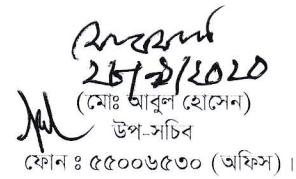 ২৮/৯/২০২০
(মোঃ আবুল হোসেন)
উপ-সচিব
ফোন ঃ ৫৫০০৬৫৩০ (অফিস)।